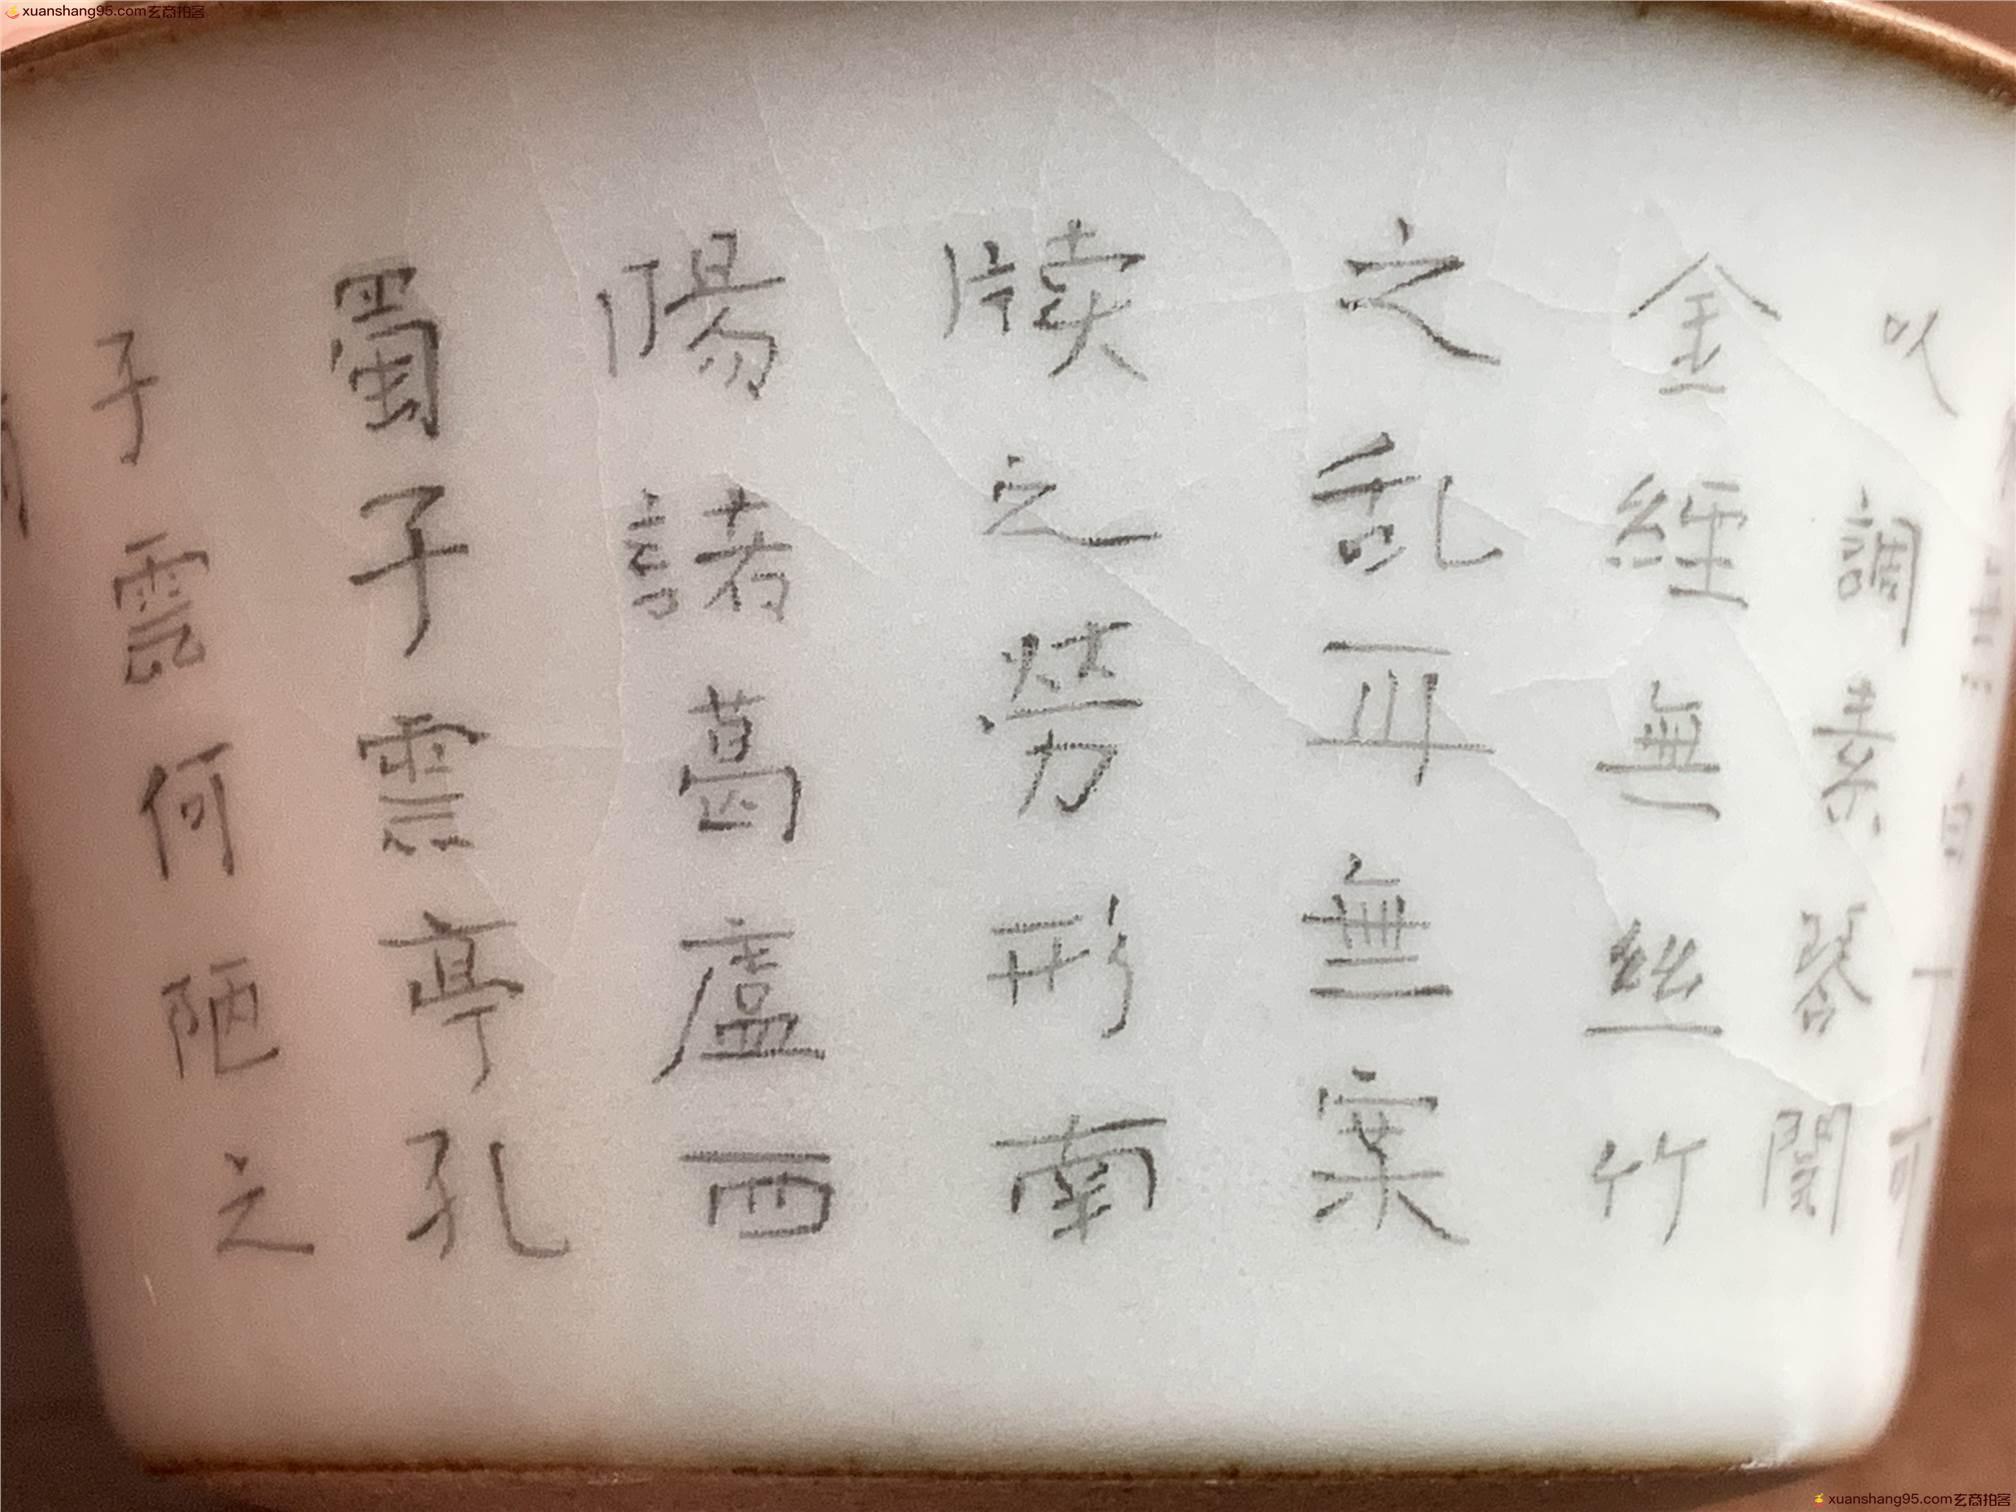 xuanshang95.com玄商拍客
可
以調素琴閱
金經無絲竹
之乱耳無案
牍之勞形南
陽諸葛廬西
蜀子雲亭孔
子雲何陋之
xuanshang95.com玄商拍客